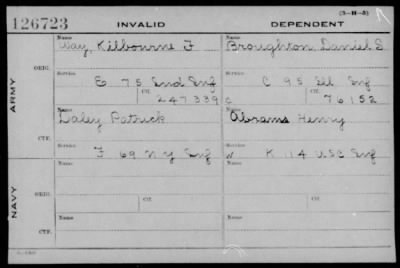 (3-H-5)
126723 INVALID DEPENDENT
Name Name
Way, Kilbourne F Broughton, Daniel S
ORIG. Service Service
E 75 Ind Inf C 95 Ill Inf
Ctf. Ctf.
247339 C 76152
ARMY
Name Name
Daley Patrick Abrams Henry
CTF. Service Service
F 69 N Y Inf W K 114 U.S.C Inf
Name Name
NAVY
ORIG. Ctf. Ctf.
Name Name
CTF.